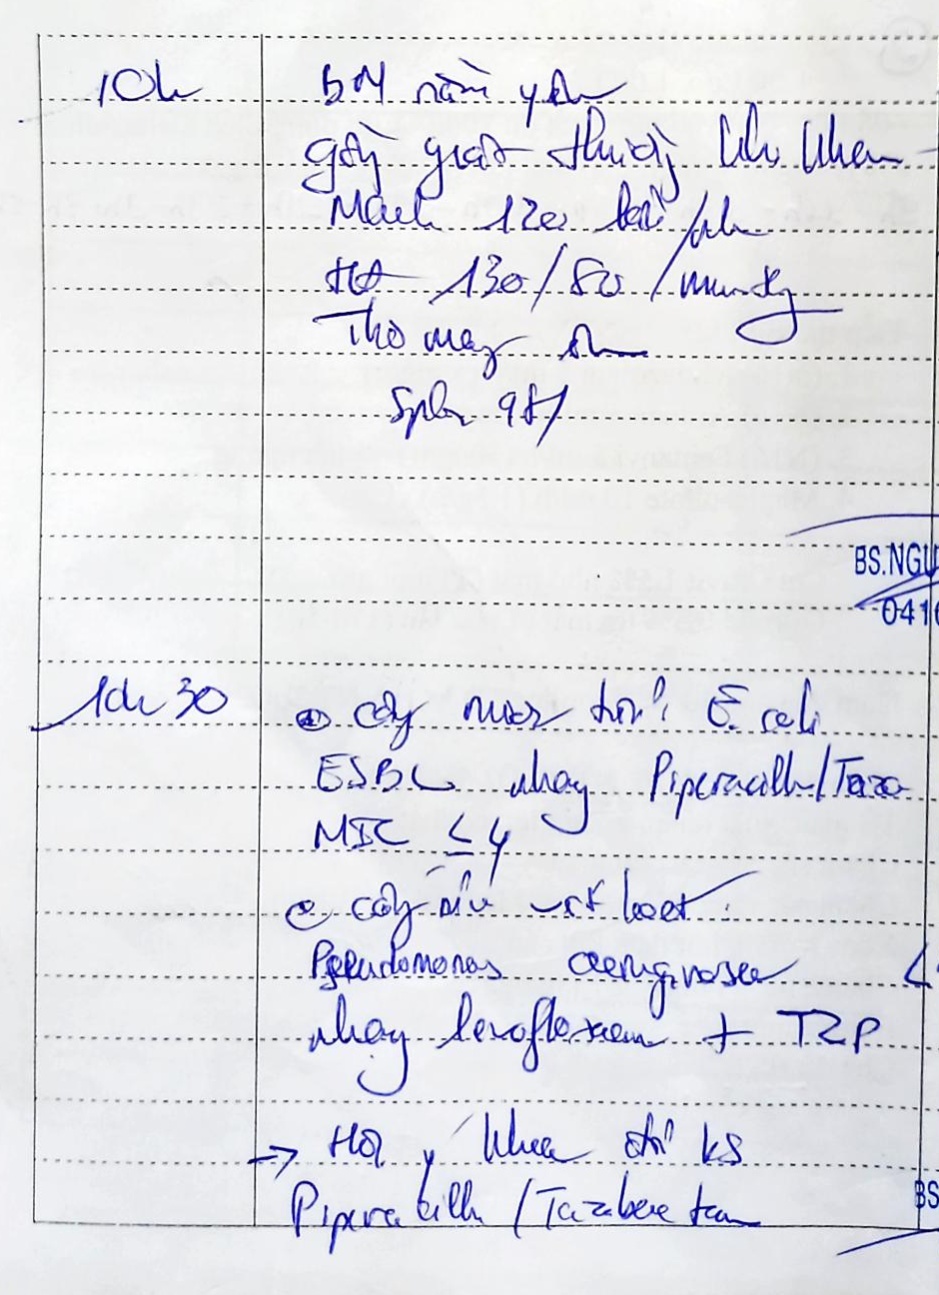 10h
BN nằm yên
gồng giật thưa, khi khám
Mạch 120 lần/ph
HA 130/80 mmHg
Thở máy
SpO2 98%
BS.NGU
0410
10h30
cấy máu trả: E coli
ESBL nhạy Piperacillin/Tazo
MIC ≤ 4
cấy vết loét:
Pseudomonas aeruginosa
nhạy levofloxacin + TZP
→ Hội ý khoa đổi KS
Piperacillin/Tazobactam
BS